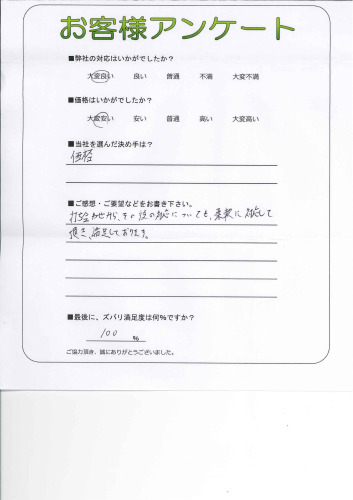 お客様アンケート
■弊社の対応はいかがでしたか？
大変良い 良い 普通 不満 大変不満
■価格はいかがでしたか？
大変安い 安い 普通 高い 大変高い
■当社を選んだ決め手は？
価格
■ご感想・ご要望などをお書き下さい。
打合わせから、その後の対応についても、柔軟に対応して
頂き、満足しております。
■最後に、ズバリ満足度は何％ですか？
100 ％
ご協力頂き、誠にありがとうございました。